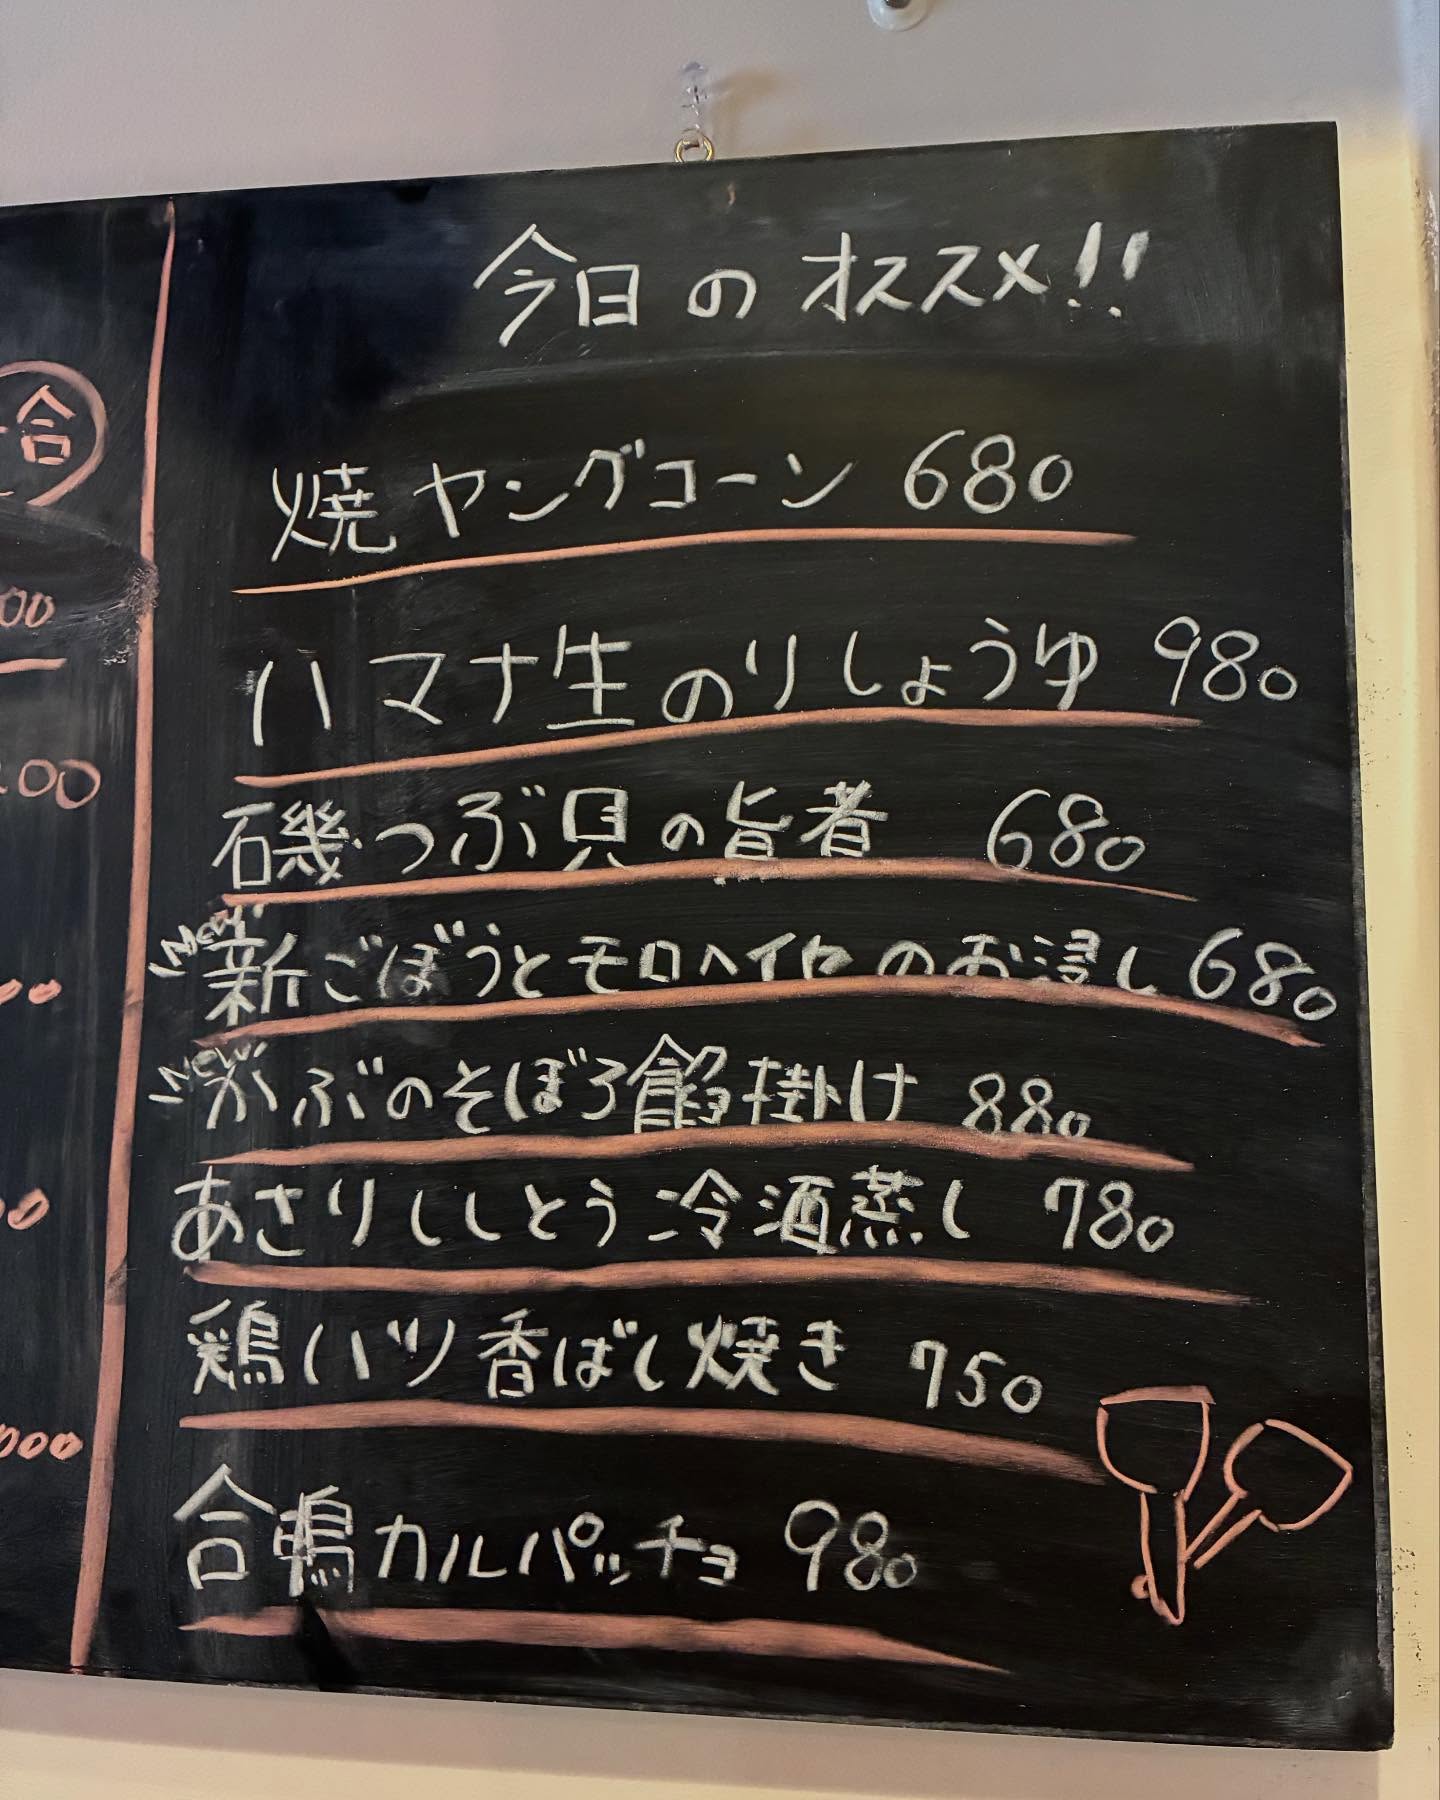 今日のオススメ!!
焼ヤングコーン 680
ハマナ生のりしょうゆ 980
磯つぶ貝の旨煮 680
New
新ごぼうとモロヘイヤのお浸し 680
New
かぶのそぼろ餡掛け 880
あさりししとう冷酒蒸し 780
鶏ハツ香ばし焼き 750
合鴨カルパッチョ 980
合
00
00
00
0
000